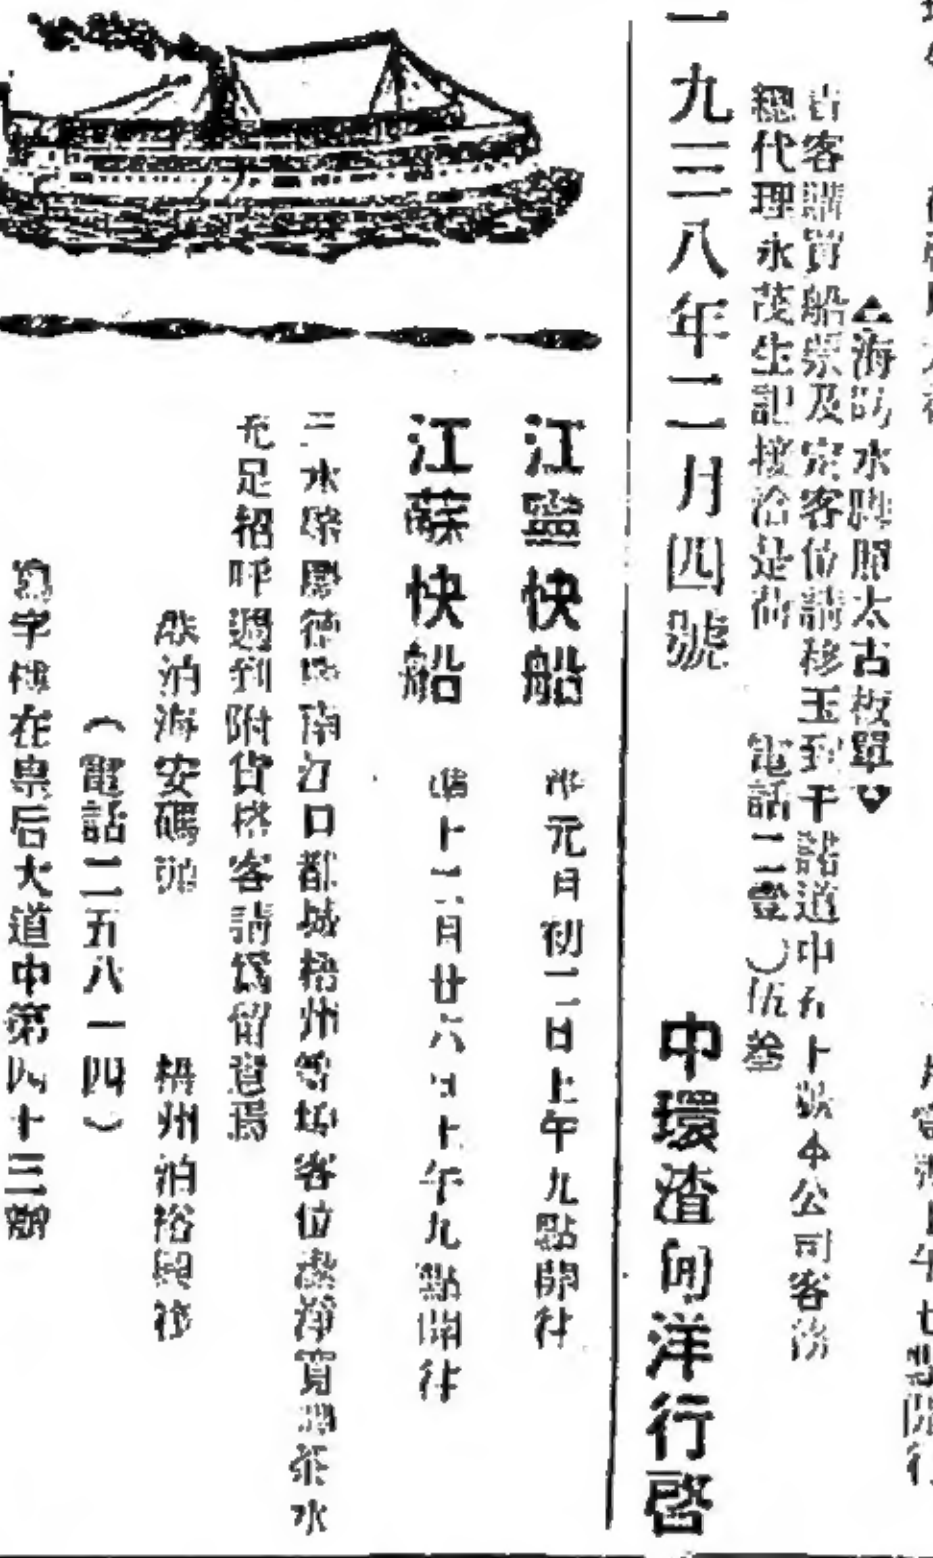 ▲海防水脚照太古板單▼
貴客購買船票及定客位請移玉到干諾道中五十號本公司客務
總代理永茂生記接洽是荷 電話二壹〇伍叁
一九三八年二月四號 中環渣甸洋行啓
江寧快船 准元月初二日上午九點開往
江蘇快船 準十二月廿六日上午九點開往
三水 德 南江口都城梧州等埠客位潔淨寬 茶水
充足招呼週到附貨搭客請為留意焉
船泊海安碼頭 梧州泊裕興筏
(電話二五八一四)
寫字樓在皇后大道中第四十三號